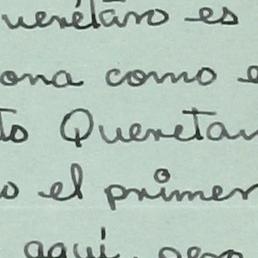 uerétaro es
ona como e
to Quereta
o el primer
aquí, pero